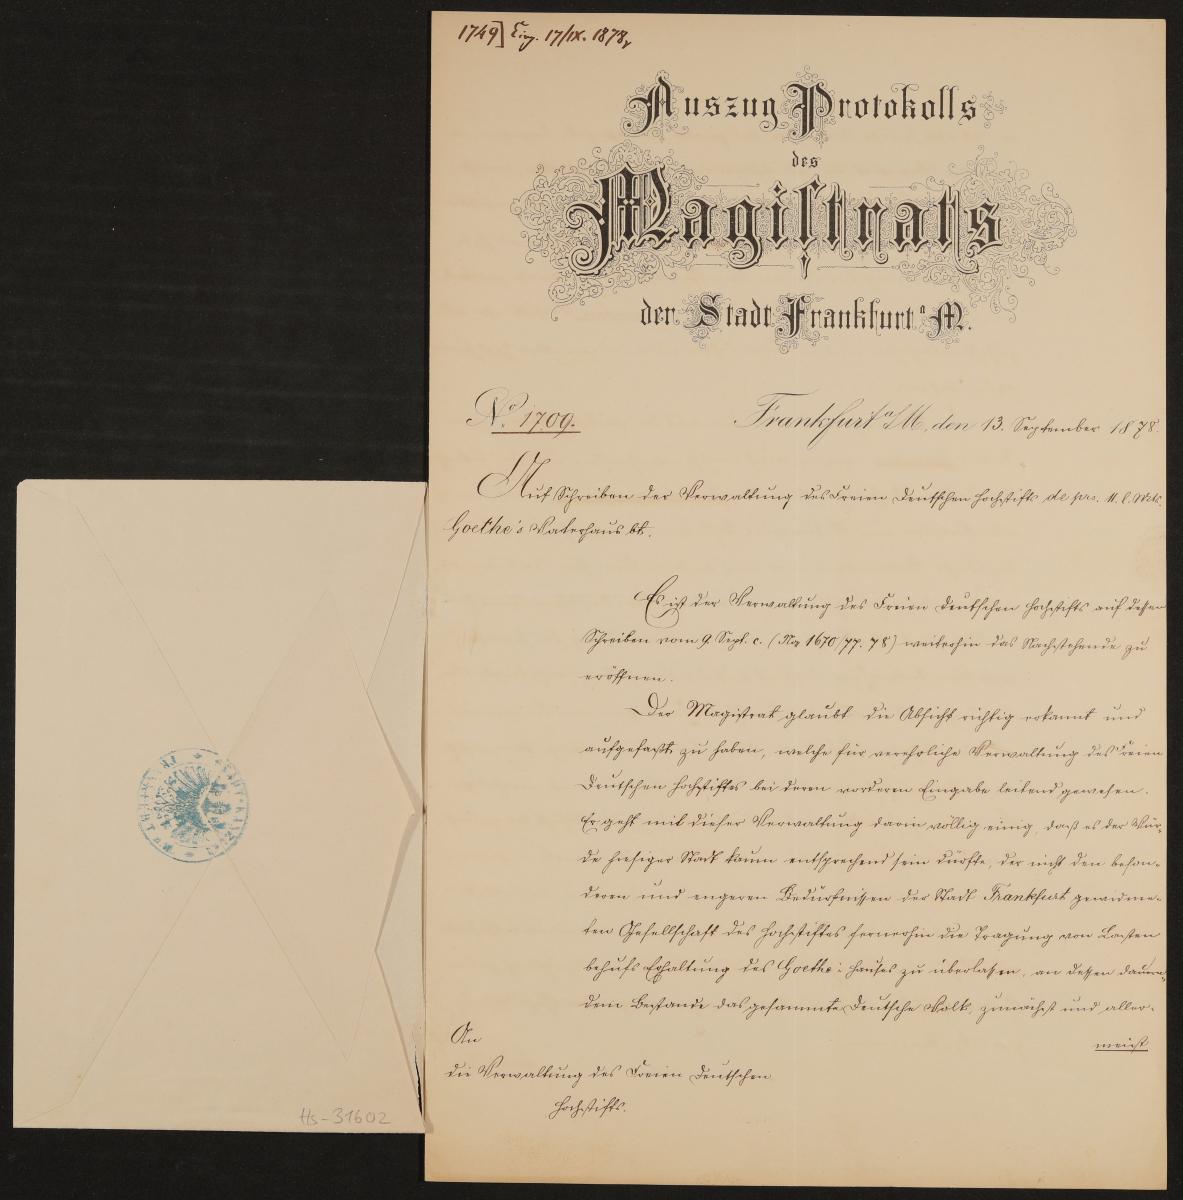 1749] Eing. 17/IX. 1878,
Auszug Protokolls
des
Magiſtrats
der Stadt Frankfurt a/M.
No. 1709.
Frankfurt a/M, den 13. September 1878.
Auf Schreiben der Verwaltung des Freien Deutschen Hochstifts de prs. 11. l. Mts.
Goethe's Vaterhaus bt.
Es ist der Verwaltung des Freien Deutschen Hochstifts auf dessen
Schreiben vom 9. Sept. c. (No 1670/77. 78) weiterhin das Nachstehende zu
eröffnen.
Der Magistrat glaubt die Absicht richtig erkannt und
aufgefaßt zu haben, welche für verehrliche Verwaltung des Freien
Deutschen Hochstiftes bei deren vorderen Eingabe leitend gewesen.
Er geht mit dieser Verwaltung darin völlig einig, daß es der Wür-
de hiesiger Stadt kaum entsprechend sein dürfte, der nicht den beson-
deren und engeren Bedürfnissen der Stadt Frankfurt gewidme-
ten Gesellschaft des Hochstiftes fernerhin die Tragung von Lasten
behufs Erhaltung des Goethe-Hauses zu überlassen, an dessen dauern-
dem Bestande das gesammte Deutsche Volk, zunächst und aller-
meist
An
die Verwaltung des Freien Deutschen
Hochstifts.
Hs-31602